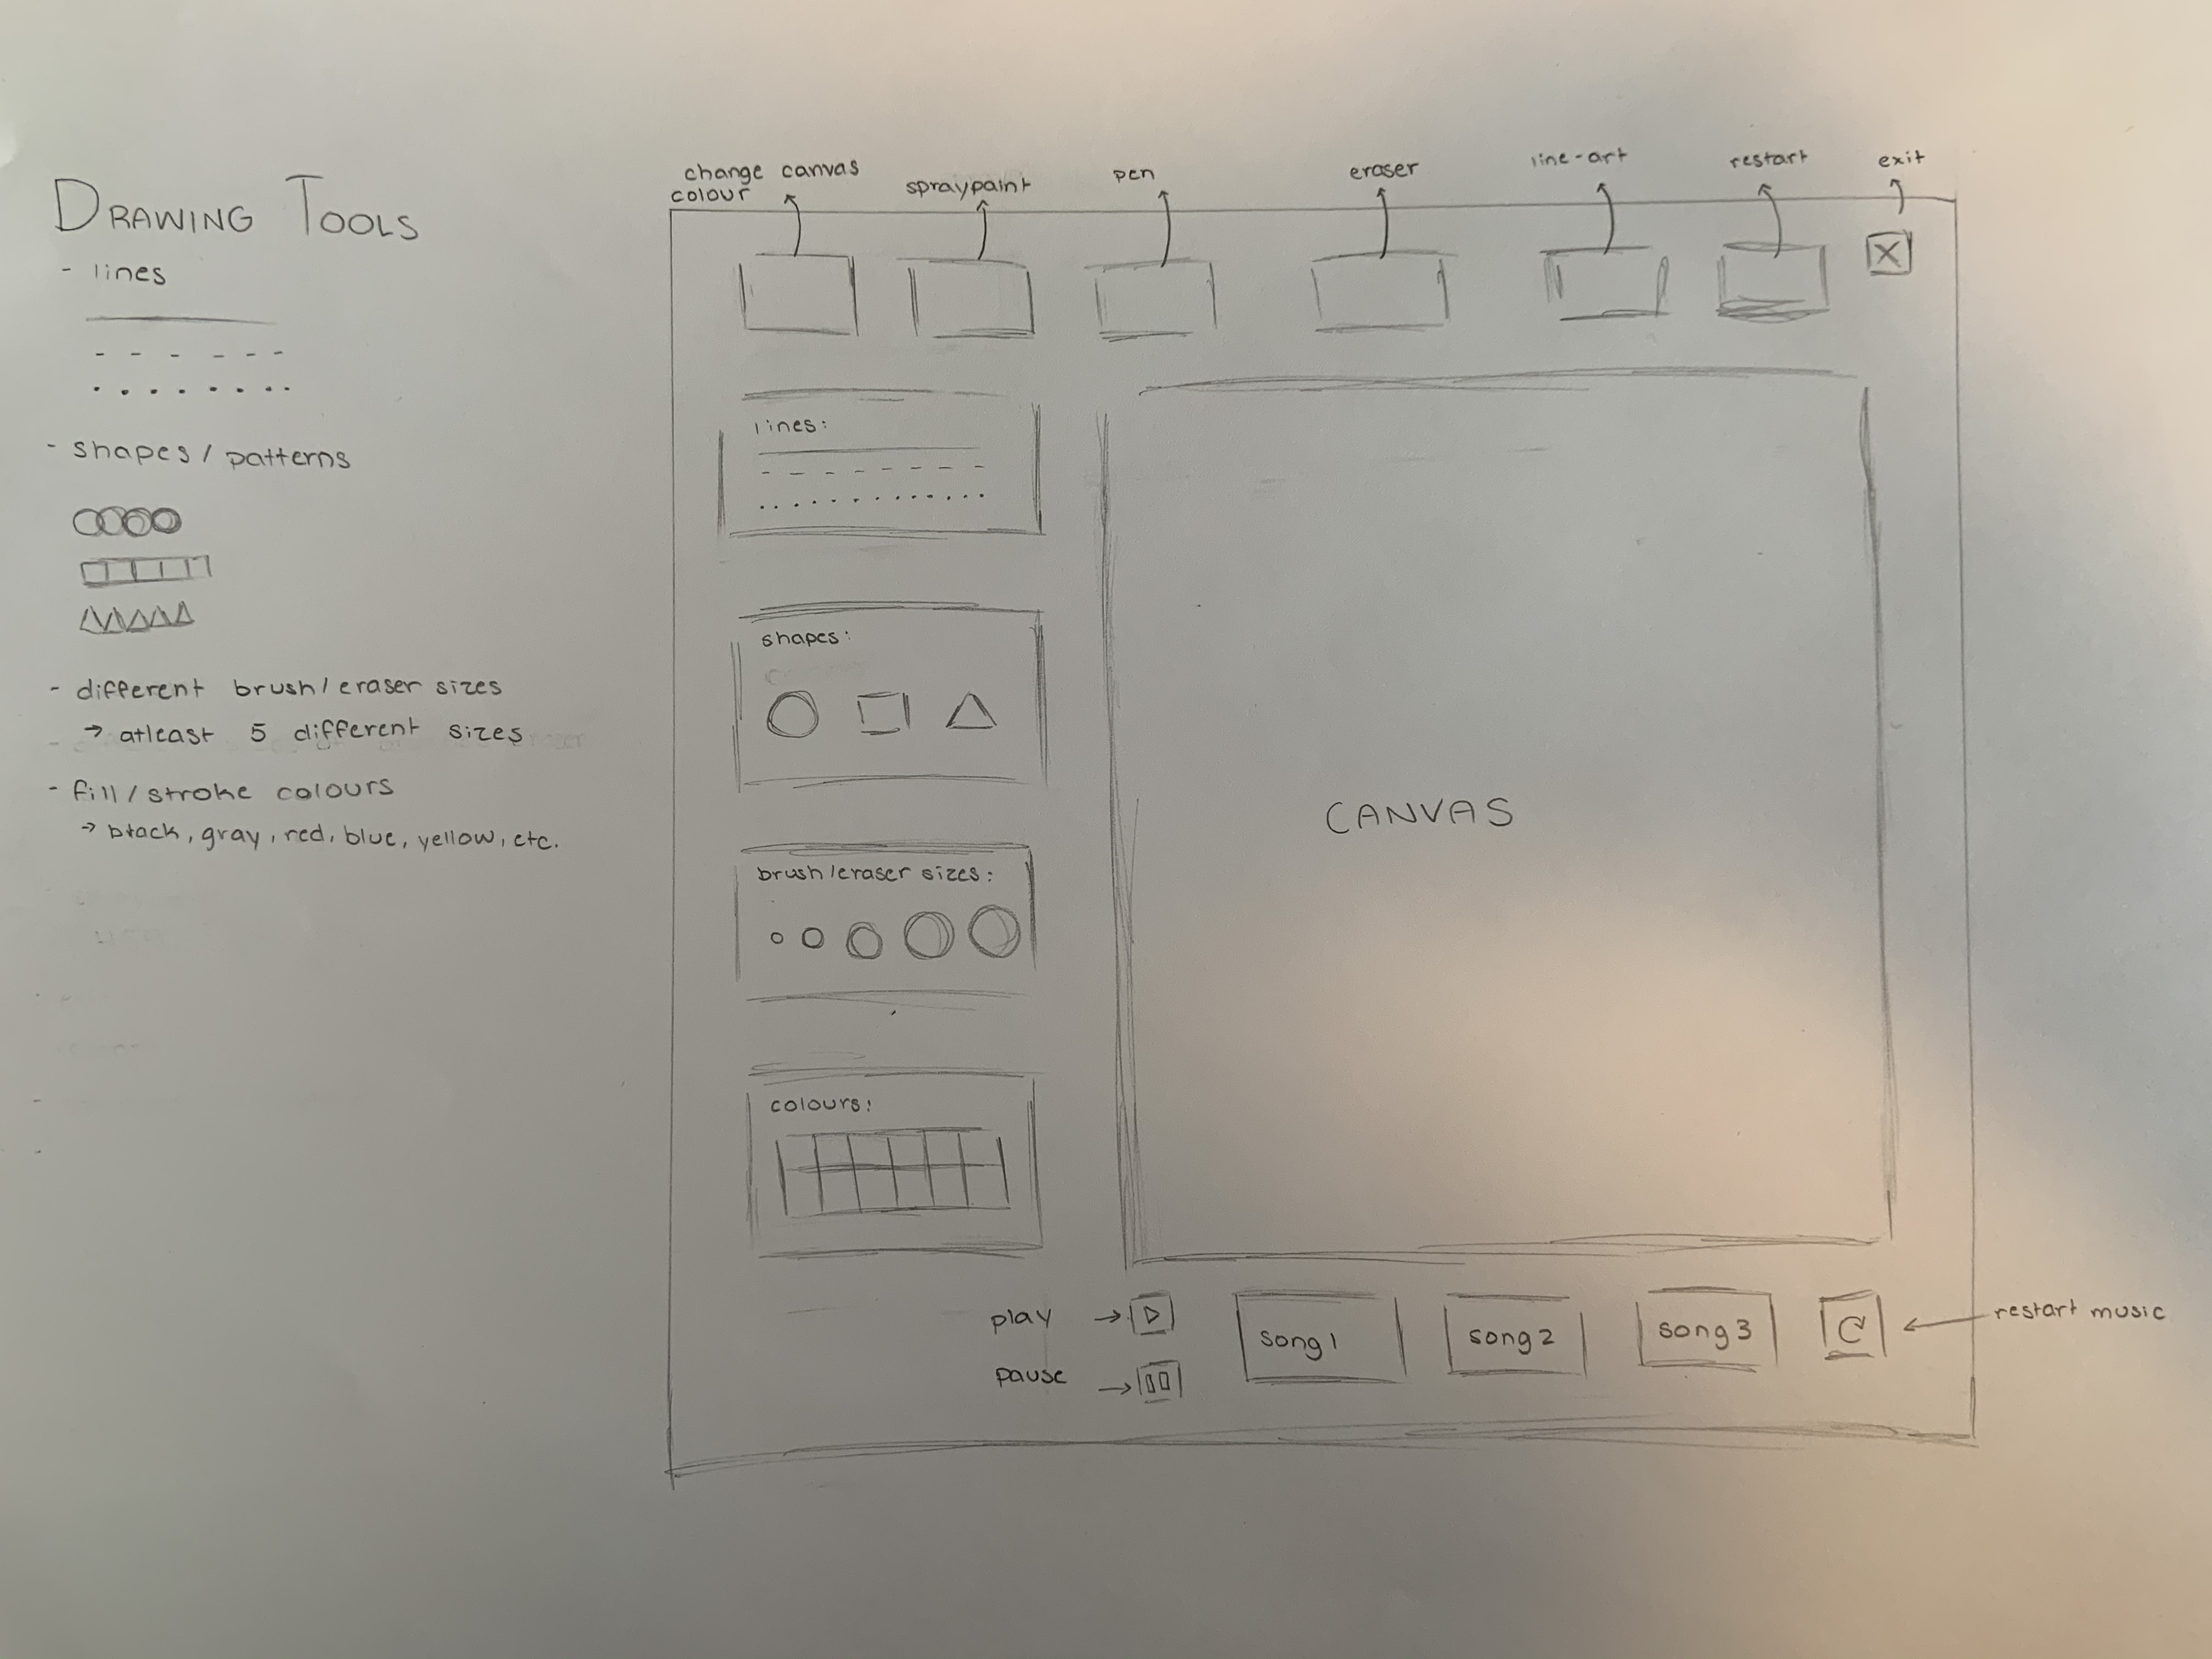 DRAWING TOOLS
- lines
- shapes / patterns
- different brush/eraser sizes
→ atleast 5 different sizes
- fill/stroke colours
→ black, gray, red, blue, yellow, etc.
change canvas
colour
spraypaint
pen
eraser
line-art
restart
exit
X
lines:
shapes:
brush/eraser sizes:
colours:
CANVAS
play →
pause →
song 1
song 2
song 3
← restart music